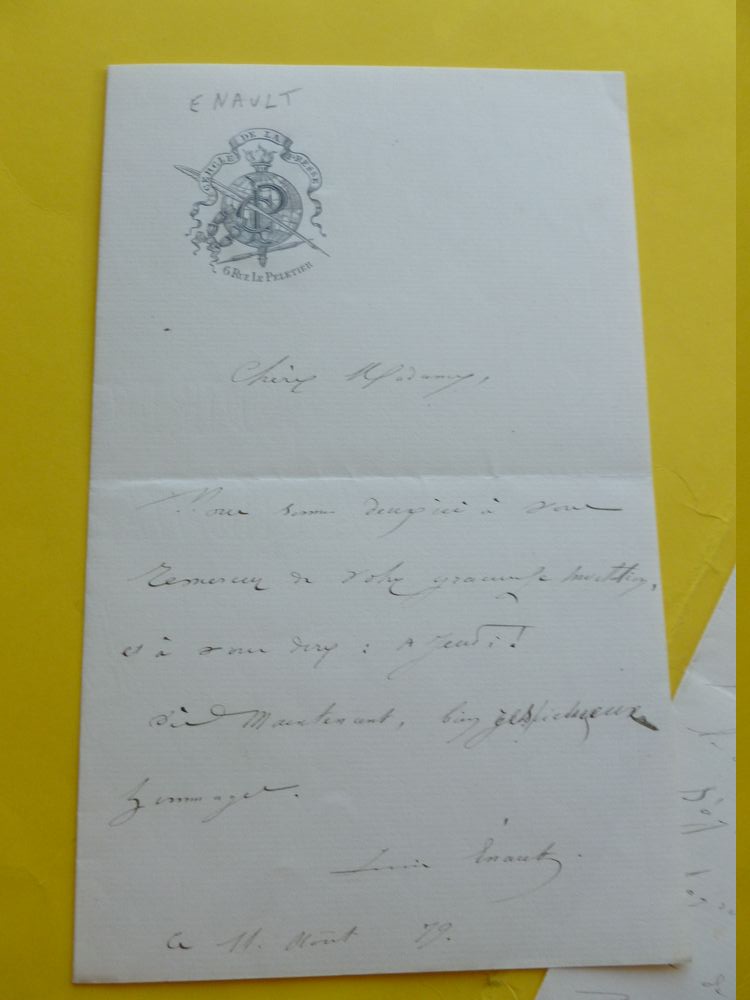 ENAULT
CERCLE DE LA PRESSE
6 RUE LE PELETIER
Chère Madame,
Nous sommes deux ici à vous
remercier de votre gracieuse invitation,
et à vous dire : à Jeudi !
Dès Maintenant, bien respectueux
hommages.
Louis Énault.
ce 11. Août 79.